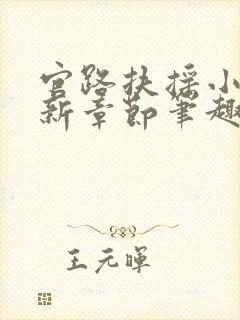 官路扶摇小
新章节笔趣
王元晖